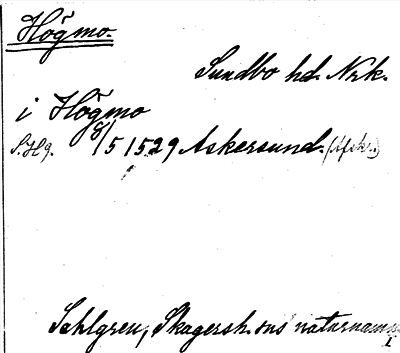 Högmo.
Sundbo hd. Nrk.
i Högmo
S.Hg. 8/5 1529 Askersund. (Afsk.)
Sahlgren, Skagersh:sns naturnamn
I